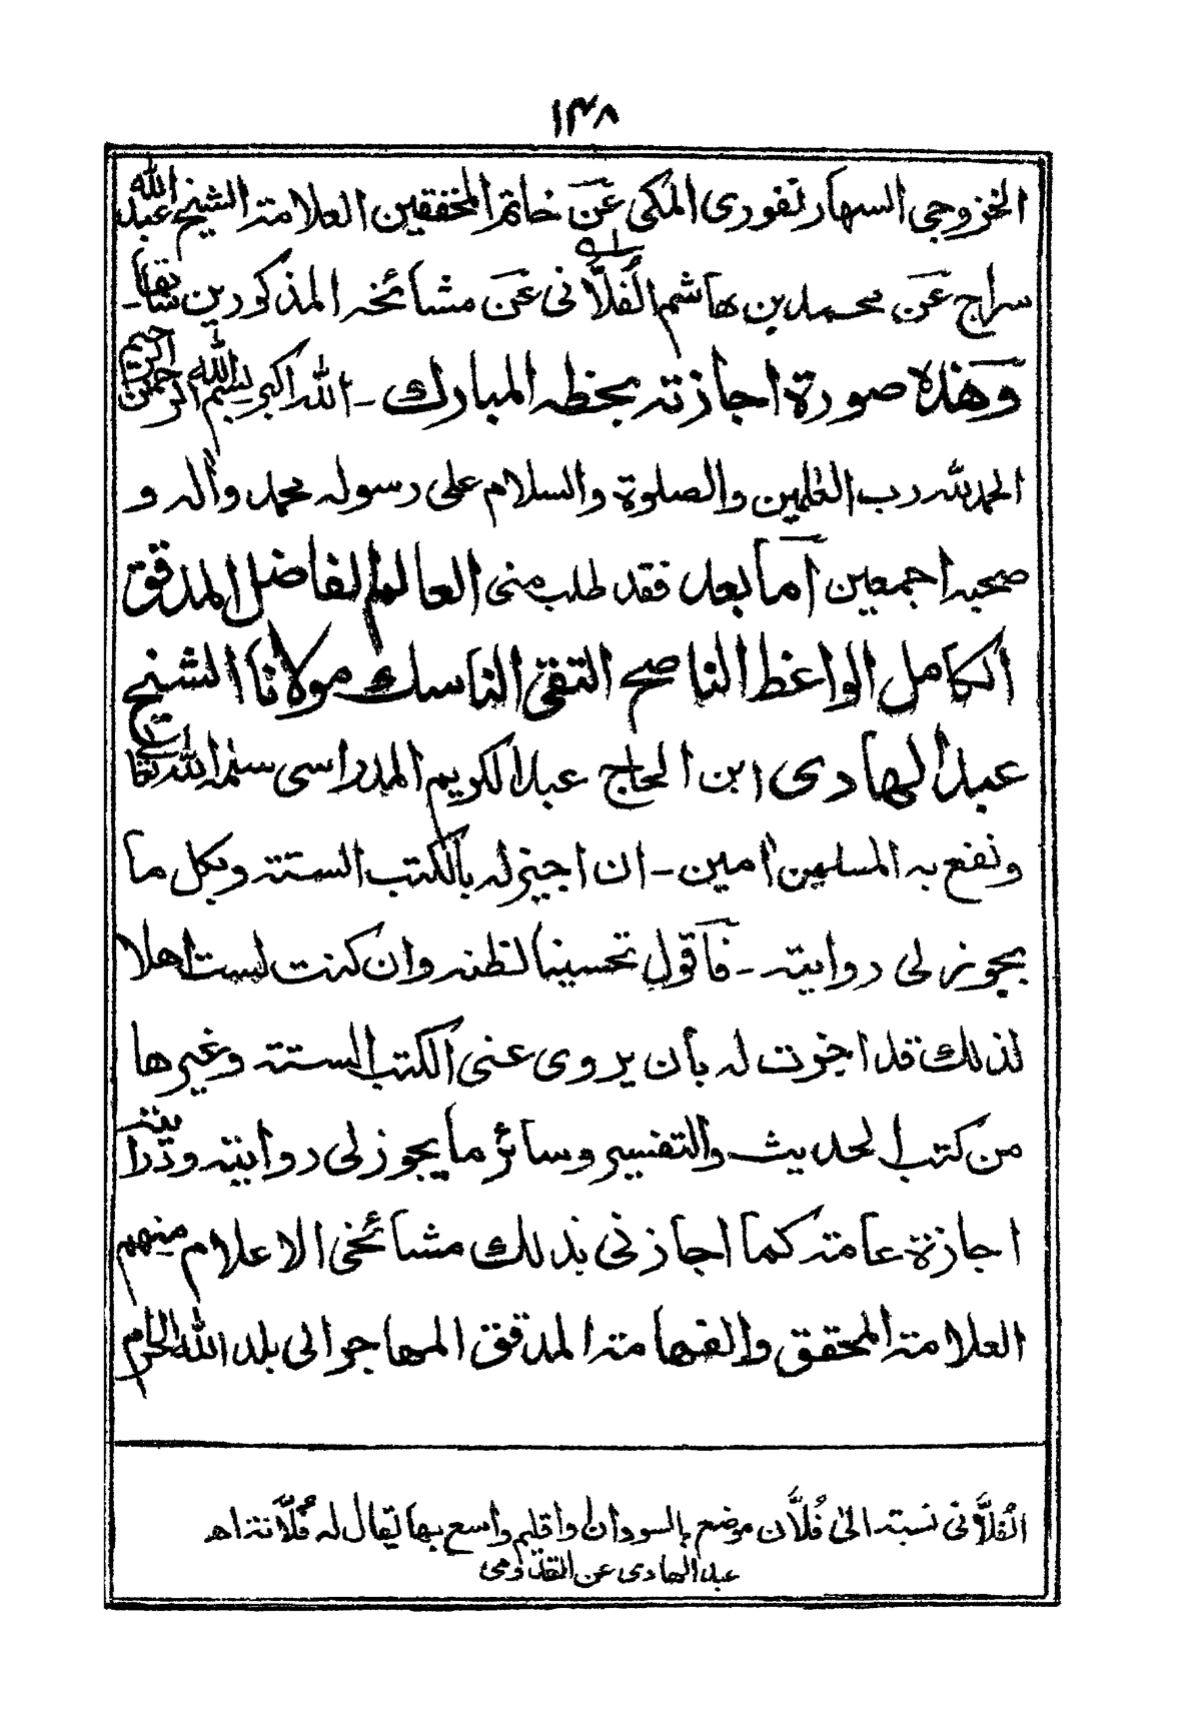 ١٣٨
الخزرجي السهارنفوري المكي عن خاتم المحققين العلامة الشيخ عبد الله
سراج عن محمد بن هاشم الفُلَّاني عن مشائخه المذكورين سابقا-
وهذه صورة اجازته بخطه المبارك - الله اكبر بسم الله الرحمن الرحيم
الحمد لله رب العٰلمين والصلوة والسلام على رسوله محمد وآله و
صحبه اجمعين اما بعد فقد طلب مني العالم الفاضل المدقق
الكامل الواعظ الناصح التقي الناسك مولانا الشيخ
عبد الهادي ابن الحاج عبد الكريم المدراسي سلمه الله تعالى
ونفع به المسلمين اٰمين - ان اجيز له بالكتب الستة وبكل ما
يجوز لي روايته - فاقول تحسينا لظنه وان كنت لست اهلا
لذلك قد اجزت له بأن يروي عني الكتب الستة وغيرها
من كتب الحديث والتفسير وسائر ما يجوز لي روايته ودرايته
اجازة عامة كما اجازني بذلك مشائخي الاعلام منهم
العلامة المحقق والفهامة المدقق المهاجر الى بلد الله الحرام
الفُلَّاني نسبة الى فُلَّان موضع بالسودان واقليم واسع بها يقال له فُلَّانة اھ
عبد الهادي عن القدومي